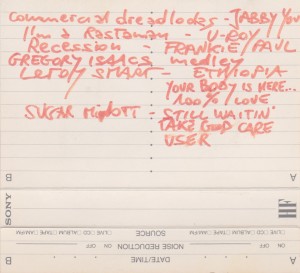 commercial dreadlocks - JABBY You
I'm a Rastaman - U-ROY
Recession - FRANKIE PAUL
GREGORY ISAACS medley
LeROY SMART - ETHIOPIA
YOUR BODY IS HERE...
100% LOVE
SUGAR MiNOTT - STILL WAITIN'
TAKE GOOD CARE
USER
B
A
SONY
HF
LIVE CD ALBUM TAPE AM/FM
LIVE CD ALBUM TAPE AM/FM
SOURCE
ON OFF
NOISE REDUCTION
ON OFF
B
DATE/TIME
A